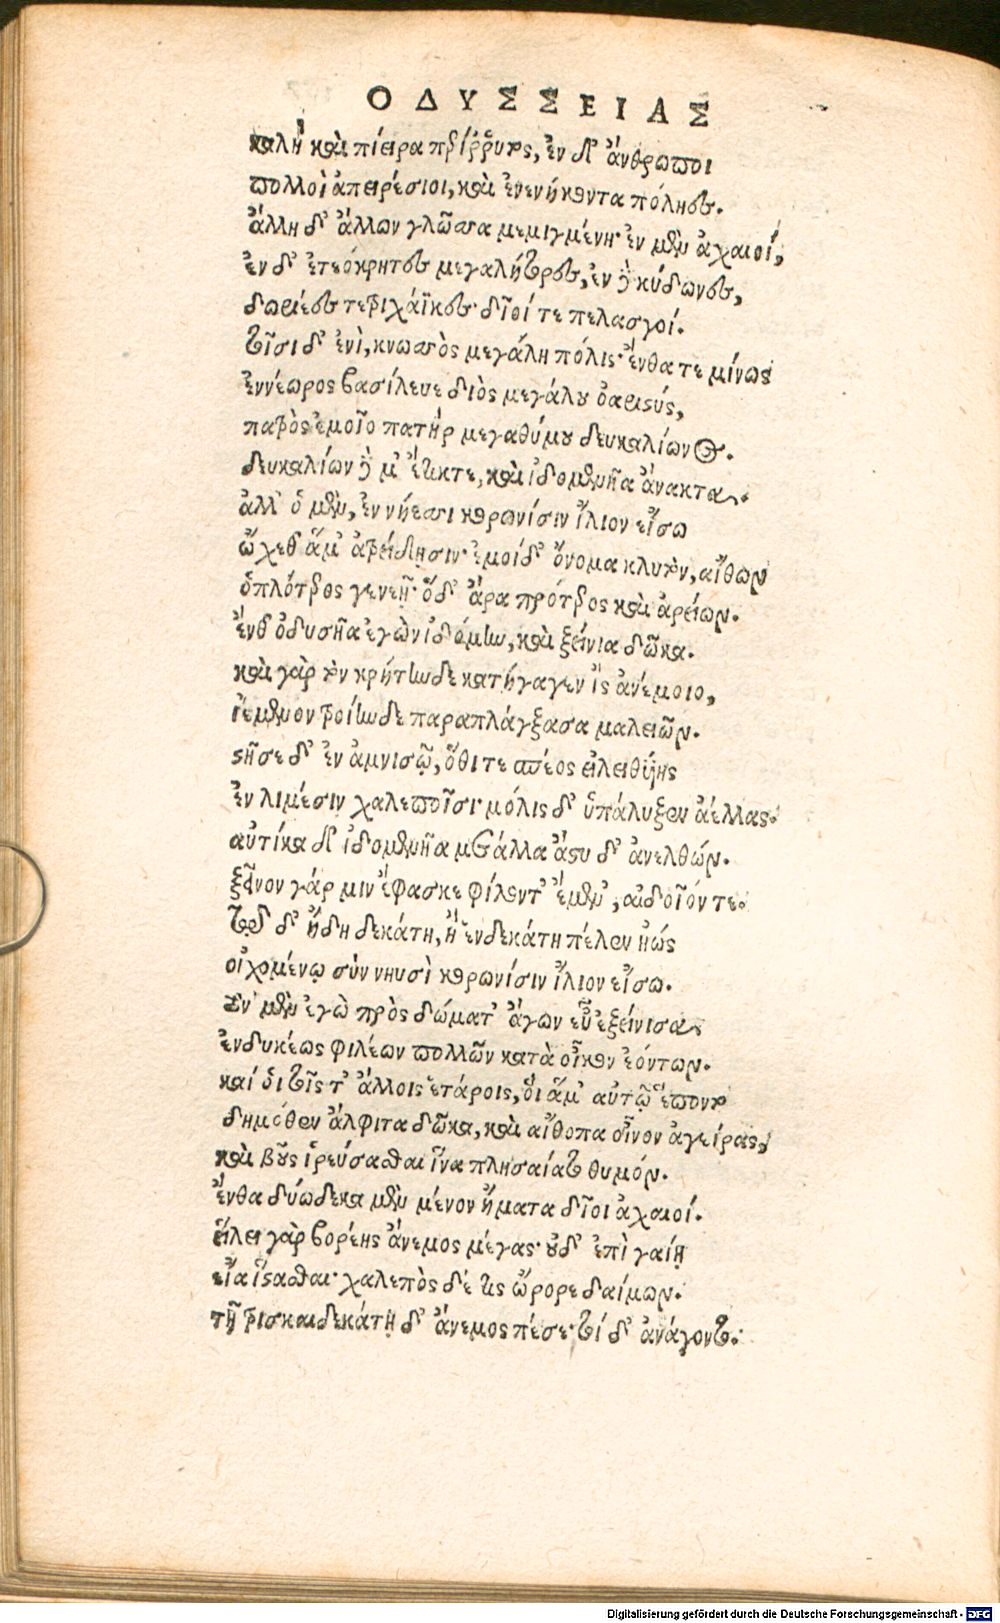 ΟΔΥΣΣΕΙΑΣ
καλὴ καὶ πίειρα περίρρυτος, ἐν δ' ἄνθρωποι
πολλοὶ ἀπειρέσιοι, καὶ ἐνενήκοντα πόληες.
ἄλλη δ' ἄλλων γλῶσσα μεμιγμένη· ἐν μὲν ἀχαιοί,
ἐν δ' ἐτεόκρητες μεγαλήτορες, ἐν δὲ κύδωνες,
δωριέες τε τριχάϊκες· δῖοί τε πελασγοί.
τῇσι δ' ἐνὶ, κνωσσὸς μεγάλη πόλις· ἔνθα τε μίνως
ἐννέωρος βασίλευε διὸς μεγάλου ὀαριστύς,
πατρὸς ἐμοῖο πατὴρ μεγαθύμου δευκαλίωνος.
δευκαλίων δὲ μ' ἔτικτε, καὶ ἰδομενῆα ἄνακτα.
ἀλλ' ὁ μὲν, ἐν νήεσσι κορωνίσιν ἴλιον εἴσω
ᾤχεθ' ἅμ' ἀτρείδῃσιν· ἐμοὶ δ' ὄνομα κλυτὸν, αἴθων
ὁπλότερος γενεῇ· ὅδ' ἄρα πρότερος καὶ ἀρείων.
ἔνθ' ὀδυσῆα ἐγὼν ἰδόμην, καὶ ξείνια δῶκα.
καὶ γὰρ τὸν κρήτην δε κατήγαγεν ἲς ἀνέμοιο,
ἱέμενον τροίην δε παραπλάγξασα μαλειῶν.
στῆσε δ' ἐν ἀμνισῷ, ὅθι τε σπέος εἰλειθυίης
ἐν λιμέσιν χαλεποῖσι· μόλις δ' ὑπάλυξεν ἀέλλας.
αὐτίκα δ' ἰδομενῆα μετάλλα ἄστυ δ' ἀνελθών.
ξεῖνον γάρ μιν ἔφασκε φίλοντ' ἔμεν, αἰδοῖόν τε.
τῷ δ' ἤδη δεκάτη, ἢ ἑνδεκάτη πέλεν ἠώς
οἰχομένῳ σὺν νηυσὶ κορωνίσιν ἴλιον εἴσω.
τὸν μὲν ἐγὼ πρὸς δώματ' ἄγων εὖ ἐξείνισα,
ἐνδυκέως φιλέων πολλῶν κατὰ οἶκον ἐόντων.
καί οἱ τοῖς τ' ἄλλοις ἑτάροις, οἳ ἅμ' αὐτῷ ἕποντο
δημόθεν ἄλφιτα δῶκα, καὶ αἴθοπα οἶνον ἀγείρας,
καὶ βοῦς ἱρεύσασθαι ἵνα πλησαίατο θυμόν.
ἔνθα δυώδεκα μὲν μένον ἤματα δῖοι ἀχαιοί.
εἴλει γὰρ βορέης ἄνεμος μέγας· οὐδ' ἐπὶ γαίῃ
εἴα ἵστασθαι· χαλεπὸς δέ τις ὤρορε δαίμων.
τῇ τρισκαιδεκάτῃ δ' ἄνεμος πέσε· τοὶ δ' ἀνάγοντο.
Digitalisierung gefördert durch die Deutsche Forschungsgemeinschaft - DFG